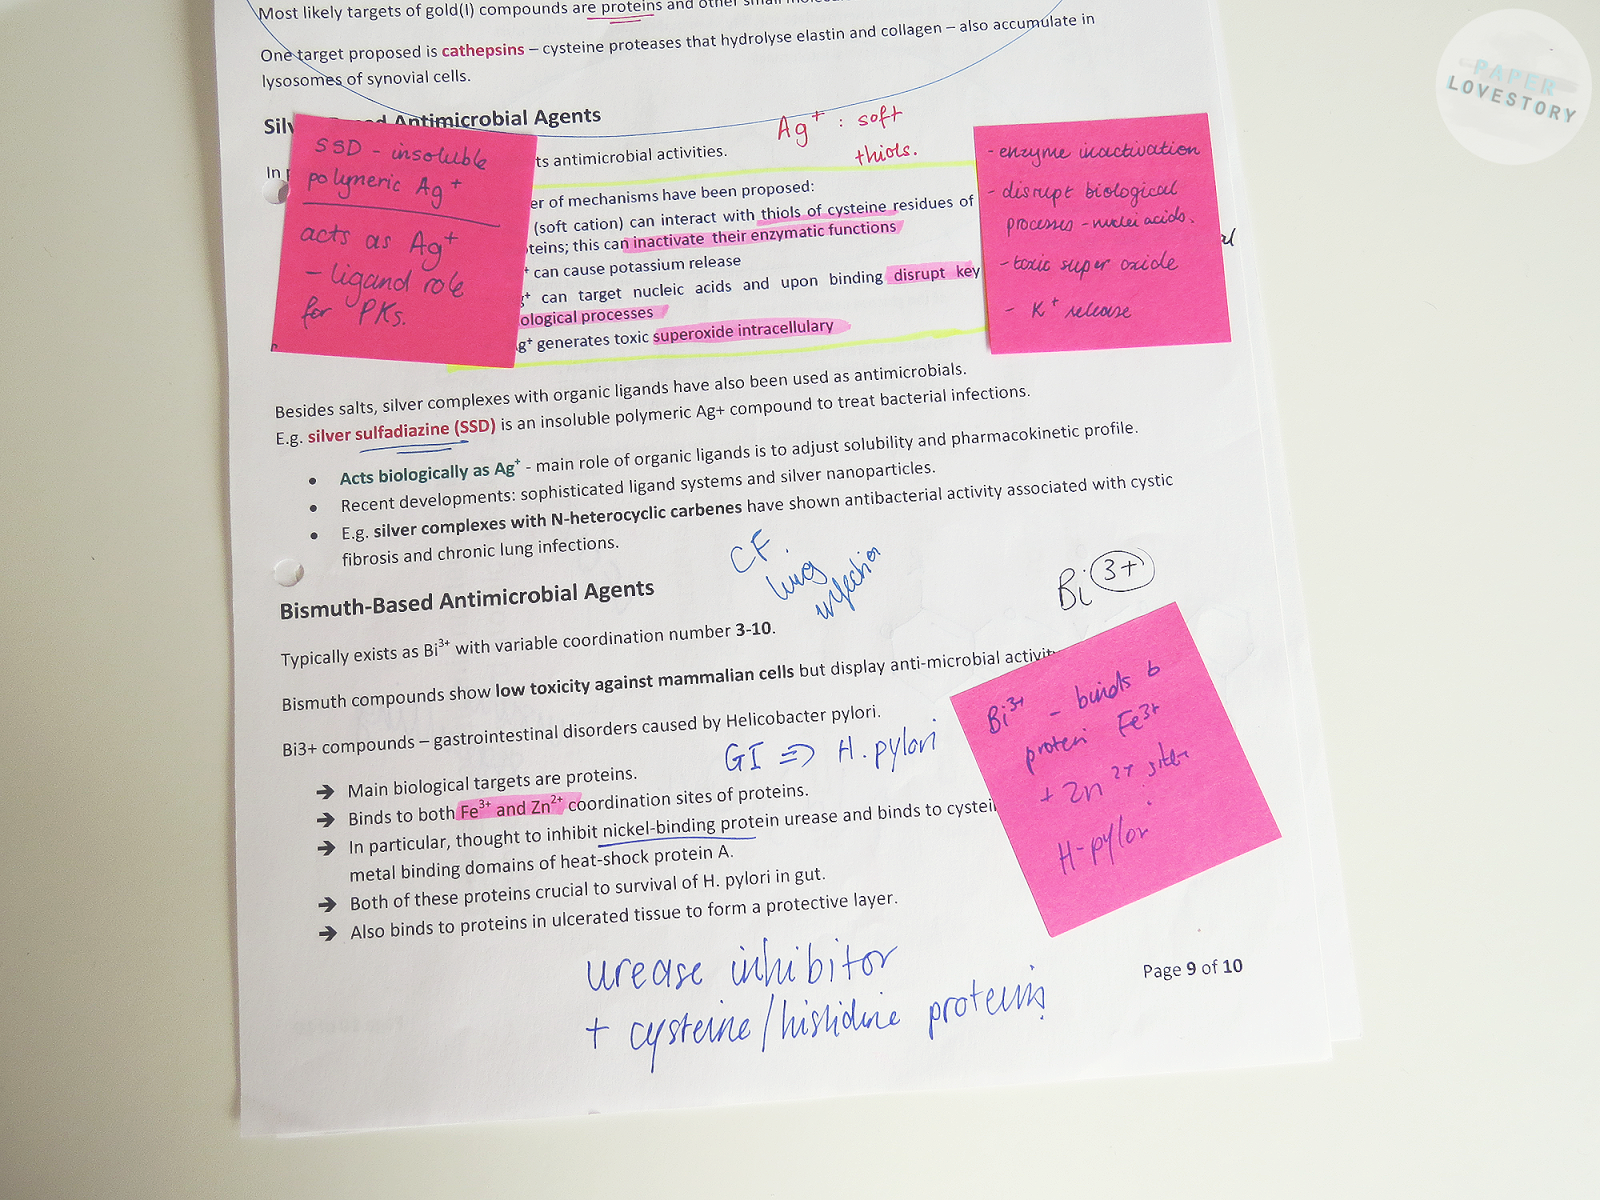 Most likely targets of gold(I) compounds are proteins and other small
One target proposed is cathepsins – cysteine proteases that hydrolyse elastin and collagen – also accumulate in
lysosomes of synovial cells.
Antimicrobial Agents
Ag+ : soft
thiols.
In
ts antimicrobial activities.
er of mechanisms have been proposed:
(soft cation) can interact with thiols of cysteine residues of
teins; this can inactivate their enzymatic functions
+ can cause potassium release
g+ can target nucleic acids and upon binding disrupt key
ological processes
g+ generates toxic superoxide intracellulary
SSD - insoluble
polymeric Ag+
acts as Ag+
- ligand role
for PKs.
- enzyme inactivation
- disrupt biological
processes - nucleic acids.
- toxic super oxide
- K+ release
Besides salts, silver complexes with organic ligands have also been used as antimicrobials.
E.g. silver sulfadiazine (SSD) is an insoluble polymeric Ag+ compound to treat bacterial infections.
• Acts biologically as Ag+ - main role of organic ligands is to adjust solubility and pharmacokinetic profile.
• Recent developments: sophisticated ligand systems and silver nanoparticles.
• E.g. silver complexes with N-heterocyclic carbenes have shown antibacterial activity associated with cystic
fibrosis and chronic lung infections.
CF.
lung
infection
Bi 3+
Bismuth-Based Antimicrobial Agents
Typically exists as Bi3+ with variable coordination number 3-10.
Bismuth compounds show low toxicity against mammalian cells but display anti-microbial activit
Bi3+ compounds – gastrointestinal disorders caused by Helicobacter pylori.
GI => H. pylori
➔ Main biological targets are proteins.
➔ Binds to both Fe3+ and Zn2+ coordination sites of proteins.
➔ In particular, thought to inhibit nickel-binding protein urease and binds to cystei
metal binding domains of heat-shock protein A.
➔ Both of these proteins crucial to survival of H. pylori in gut.
➔ Also binds to proteins in ulcerated tissue to form a protective layer.
Bi3+ - binds to
protein Fe3+
+ Zn2+ sites
H-pylori
urease inhibitor
+ cysteine/histidine proteins
Page 9 of 10
PAPER
LOVESTORY